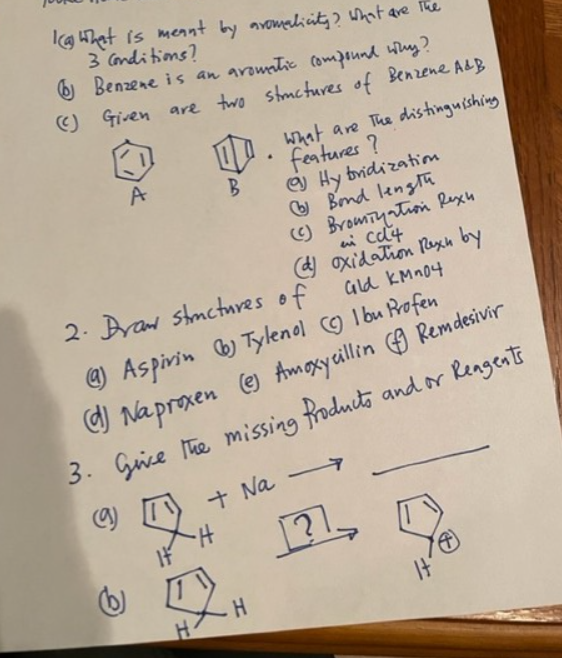 1(a) What is meant by aromaticity? What are The
3 Conditions?
(b) Benzene is an aromatic compound why?
(c) Given are two structures of Benzene A&B
A
B
. What are The distinguishing
features?
(a) Hybridization
(b) Bond length
(c) Bromination Rexn
in CCl4
(d) Oxidation Rexn by
Cold KMnO4
2. Draw structures of
(a) Aspirin (b) Tylenol (c) Ibu Profen
(d) Naproxen (e) Amoxycillin (f) Remdesivir
3. Give The missing Products and or Reagents
(a) H H + Na →
(b) H H [?] → H +